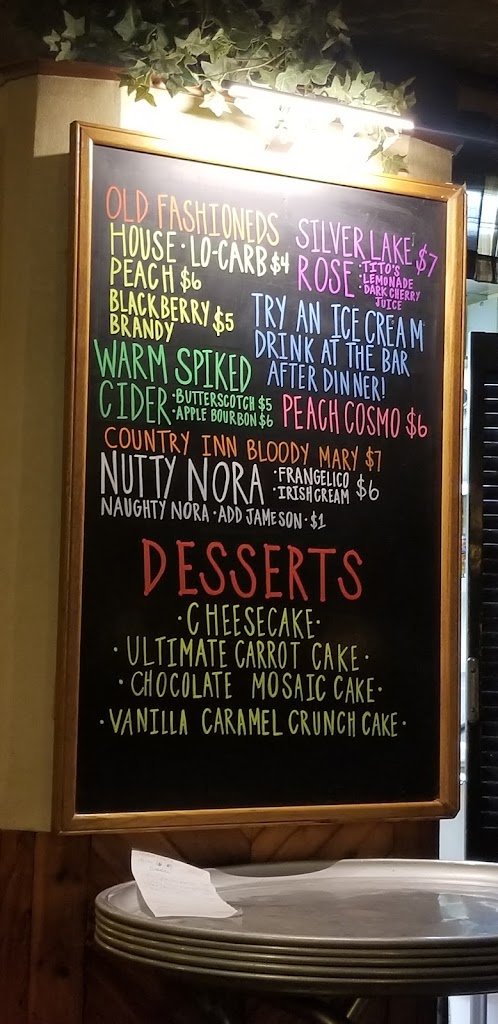 OLD FASHIONEDS
HOUSE · LO-CARB $4
PEACH $6
BLACKBERRY $5
BRANDY
SILVER LAKE $7
ROSE : TITO'S
LEMONADE
DARK CHERRY
JUICE
TRY AN ICE CREAM
DRINK AT THE BAR
AFTER DINNER!
WARM SPIKED
CIDER · BUTTERSCOTCH $5
· APPLE BOURBON $6
PEACH COSMO $6
COUNTRY INN BLOODY MARY $7
NUTTY NORA · FRANGELICO $6
· IRISH CREAM
NAUGHTY NORA · ADD JAMESON · $1
DESSERTS
· CHEESECAKE ·
· ULTIMATE CARROT CAKE ·
· CHOCOLATE MOSAIC CAKE ·
· VANILLA CARAMEL CRUNCH CAKE ·